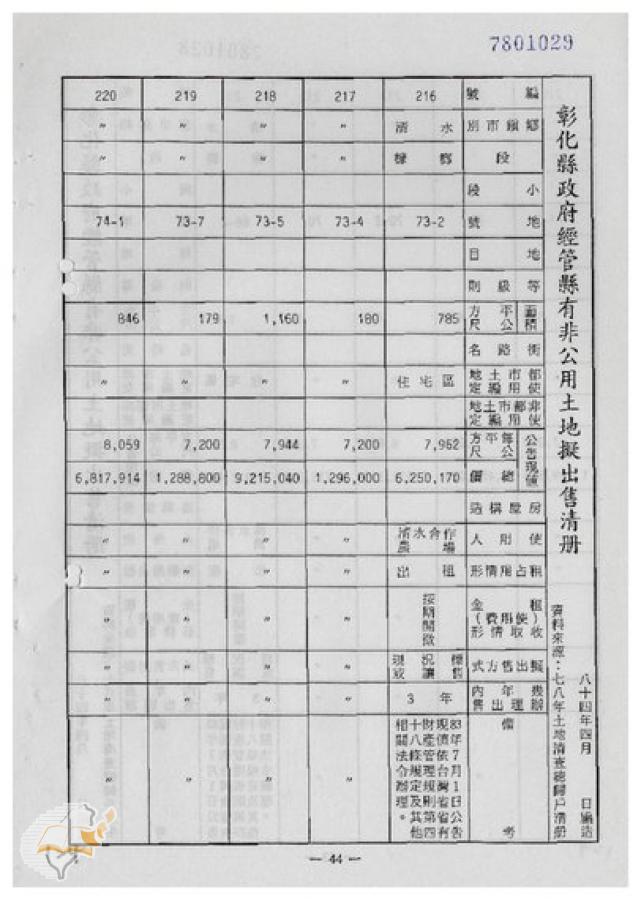 7801029
彰化縣政府經管縣有非公用土地擬出售清册
資料來源：七八年土地清查總歸戶清册
八十四年四月　日編造
編號 216 217 218 219 220
鄉鎮市別 清水 〃 〃 〃 〃
段 〃 〃 〃 〃
小段
地號 73-2 73-4 73-5 73-7 74-1
地目
等級則
面積 平方公尺 785 180 1,160 179 846
街路名
都市土地使用編定 住宅區 〃 〃 〃 〃
非都市土地使用編定
公告現值 每平方公尺 7,962 7,200 7,944 7,200 8,059
總價 6,250,170 1,296,000 9,215,040 1,288,800 6,817,914
房屋構造
使用人 清水合作農場 〃 〃 〃 〃
租占用情形 出租 〃 〃 〃 〃
租金(使用費)收取情形 按期開徵 〃 〃 〃 〃
擬出售方式 現況標售或讓售 〃 〃 〃 〃
幾年內辦理出售 3年 〃 〃 〃 〃
備考 83年7月1日公告現值依台灣省省有財產管理規則第四十八條規定及其他相關法令辦理。 〃 〃 〃 〃
— 44 —